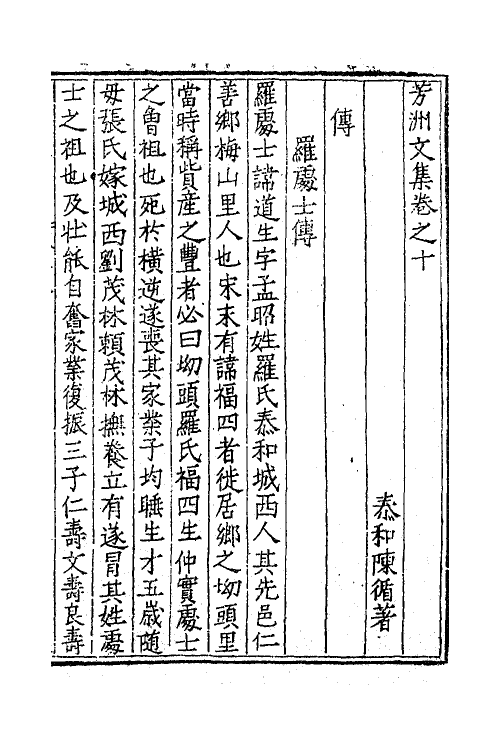 芳洲文集卷之十
泰和陳循著
傳
羅處士傳
羅處士諱道生字孟昭姓羅氏泰和城西人其先邑仁
善鄉梅山里人也宋末有諱福四者徙居鄉之坳頭里
當時稱貲産之豐者必曰坳頭羅氏福四生仲實處士
之曾祖也死於横逆遂喪其家業子均
生才五歲随
母張氏嫁城西劉茂林賴茂林撫養立有遂冐其姓處
士之祖也及壯能自奮家業復振三子仁壽文壽良壽